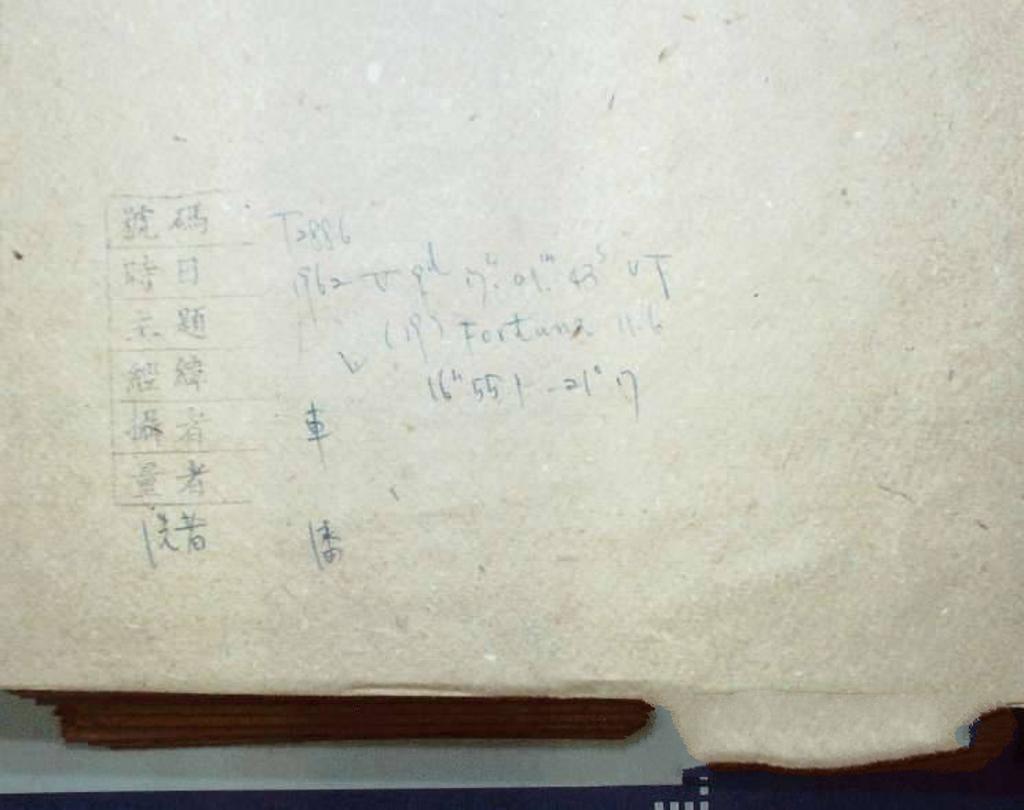 號碼 T2886
時日 1962 V 9ᵈ 17ʰ 01ᵐ 43ˢ UT
題 (19) Fortuna 11.6
經緯 16ʰ55 1 -21° 17
攝者 車
量者
洗者 潘